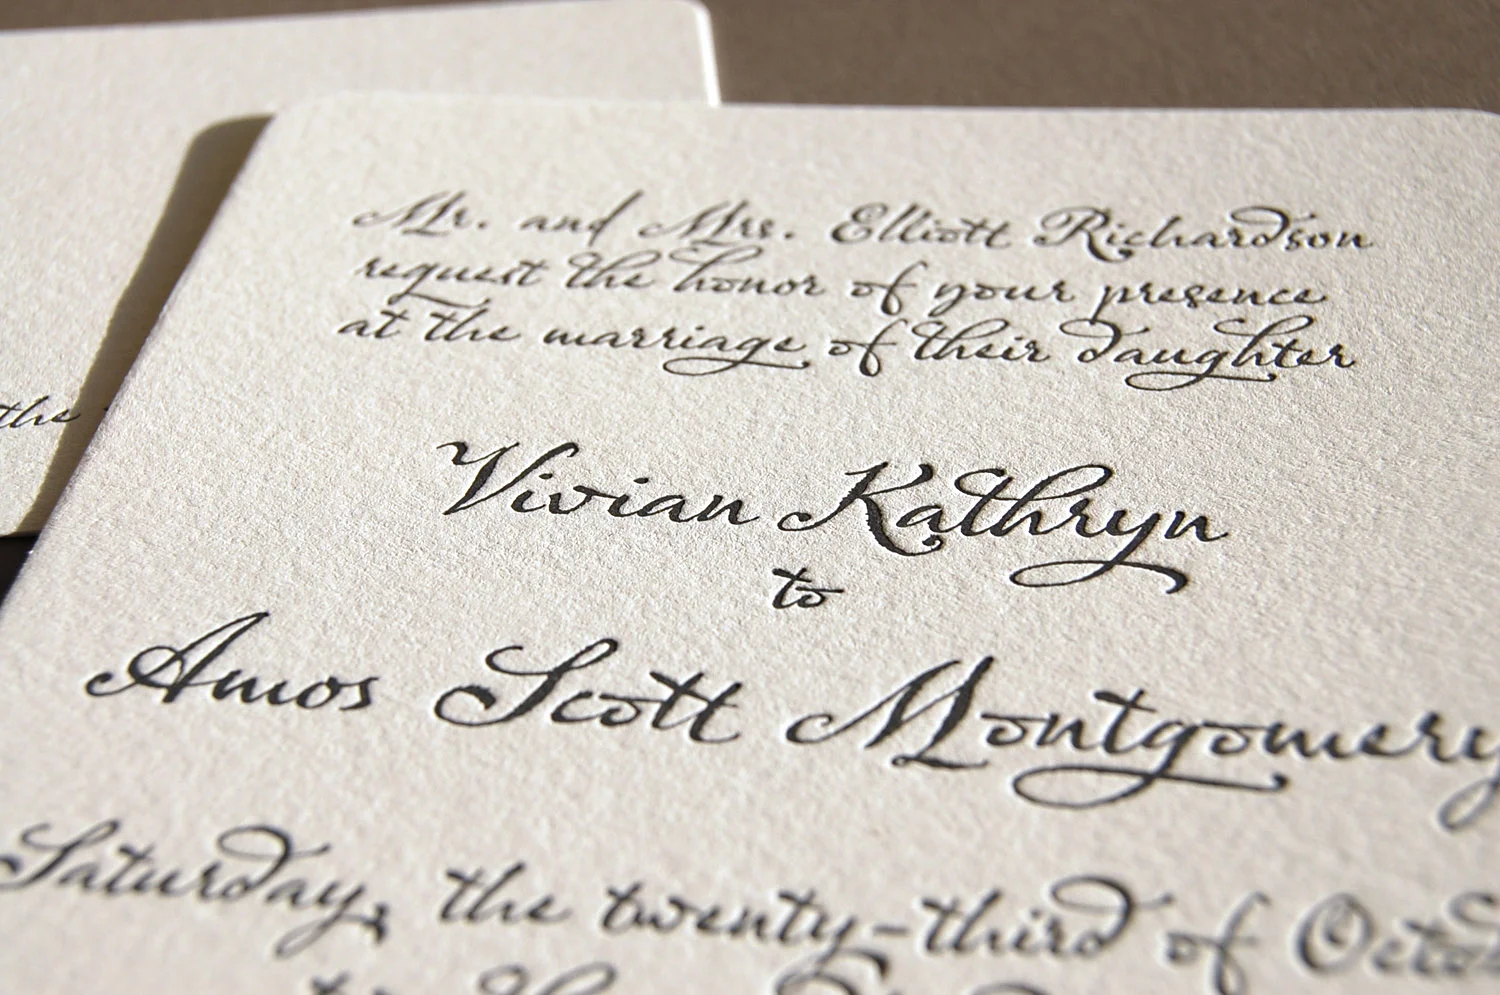 Mr. and Mrs. Elliott Richardson
request the honor of your presence
at the marriage of their daughter
Vivian Kathryn
to
Amos Scott Montgomery
Saturday, the twenty-third of Octo
the